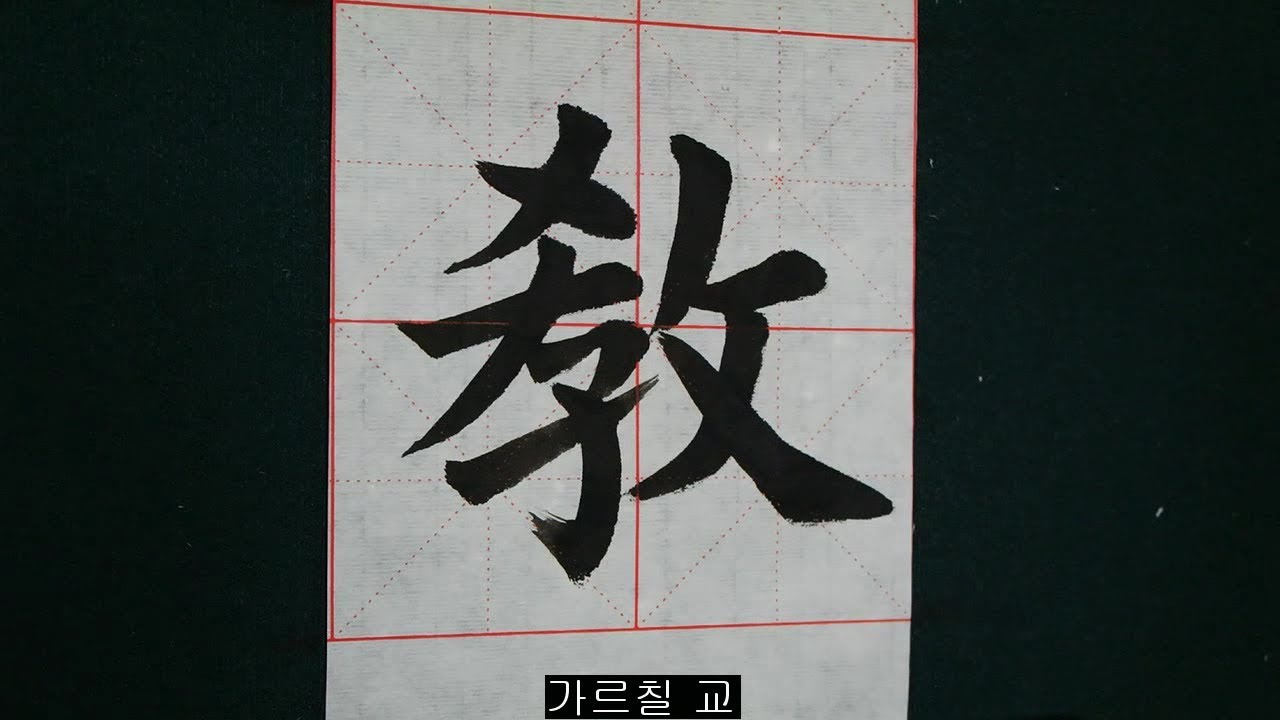 敎
가르칠 교